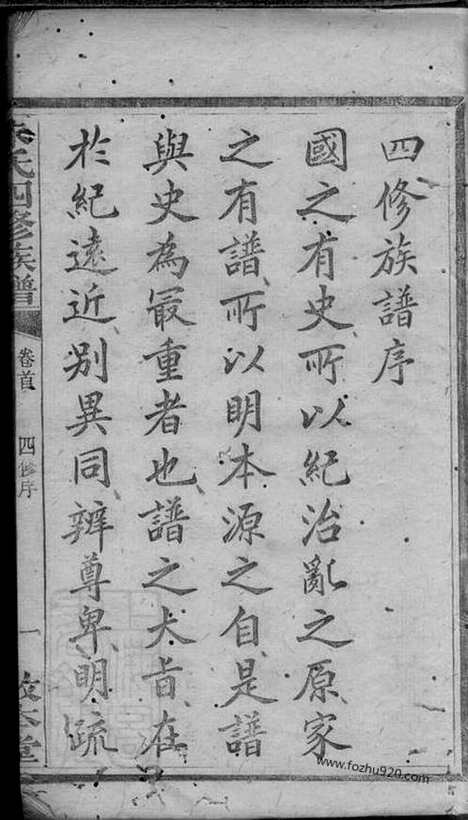 四修族譜序
國之有史所以紀治亂之原家
之有譜所以明本源之自是譜
與史為最重者也譜之大旨在
於紀遠近别異同辨尊卑明疏
氏四修族譜
卷首
四修序
一
本堂
www.fozhu920.com